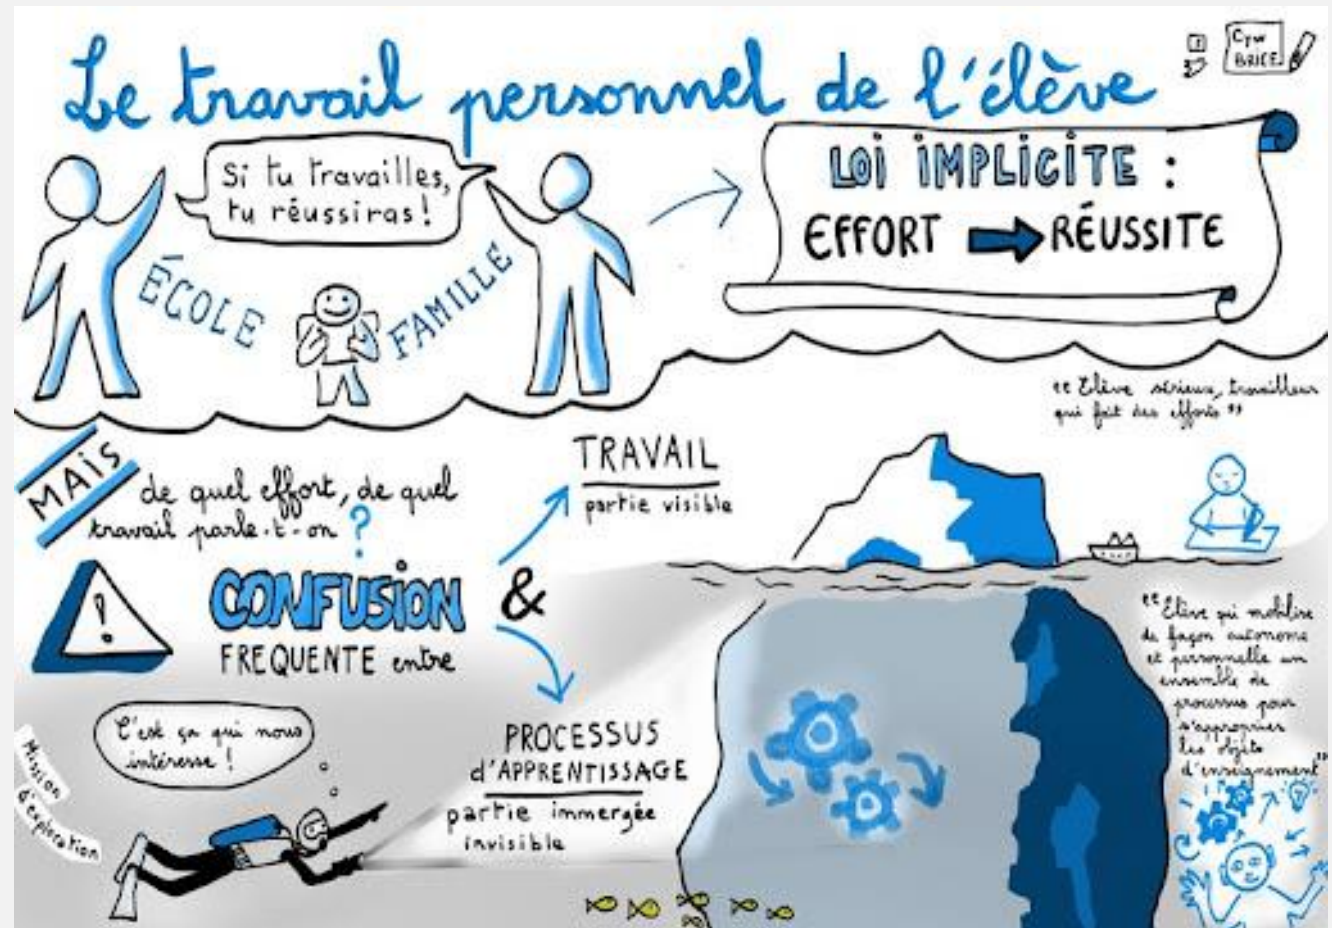 Le travail personnel de l'élève
Cyw
BRICE
Si tu travailles,
tu réussiras!
ÉCOLE
FAMILLE
LOI IMPLICITE :
EFFORT ➡ RÉUSSITE
MAIS
de quel effort, de quel
travail parle-t-on ?
!
CONFUSION
FREQUENTE entre
&
TRAVAIL
partie visible
PROCESSUS
d'APPRENTISSAGE
partie immergée
invisible
"Elève sérieux, travailleur
qui fait des efforts"
"Elève qui mobilise
de façon autonome
et personnelle un
ensemble de
processus pour
s'approprier
les objets
d'enseignement"
C'est ça qui nous
intéresse !
Mission
d'exploration